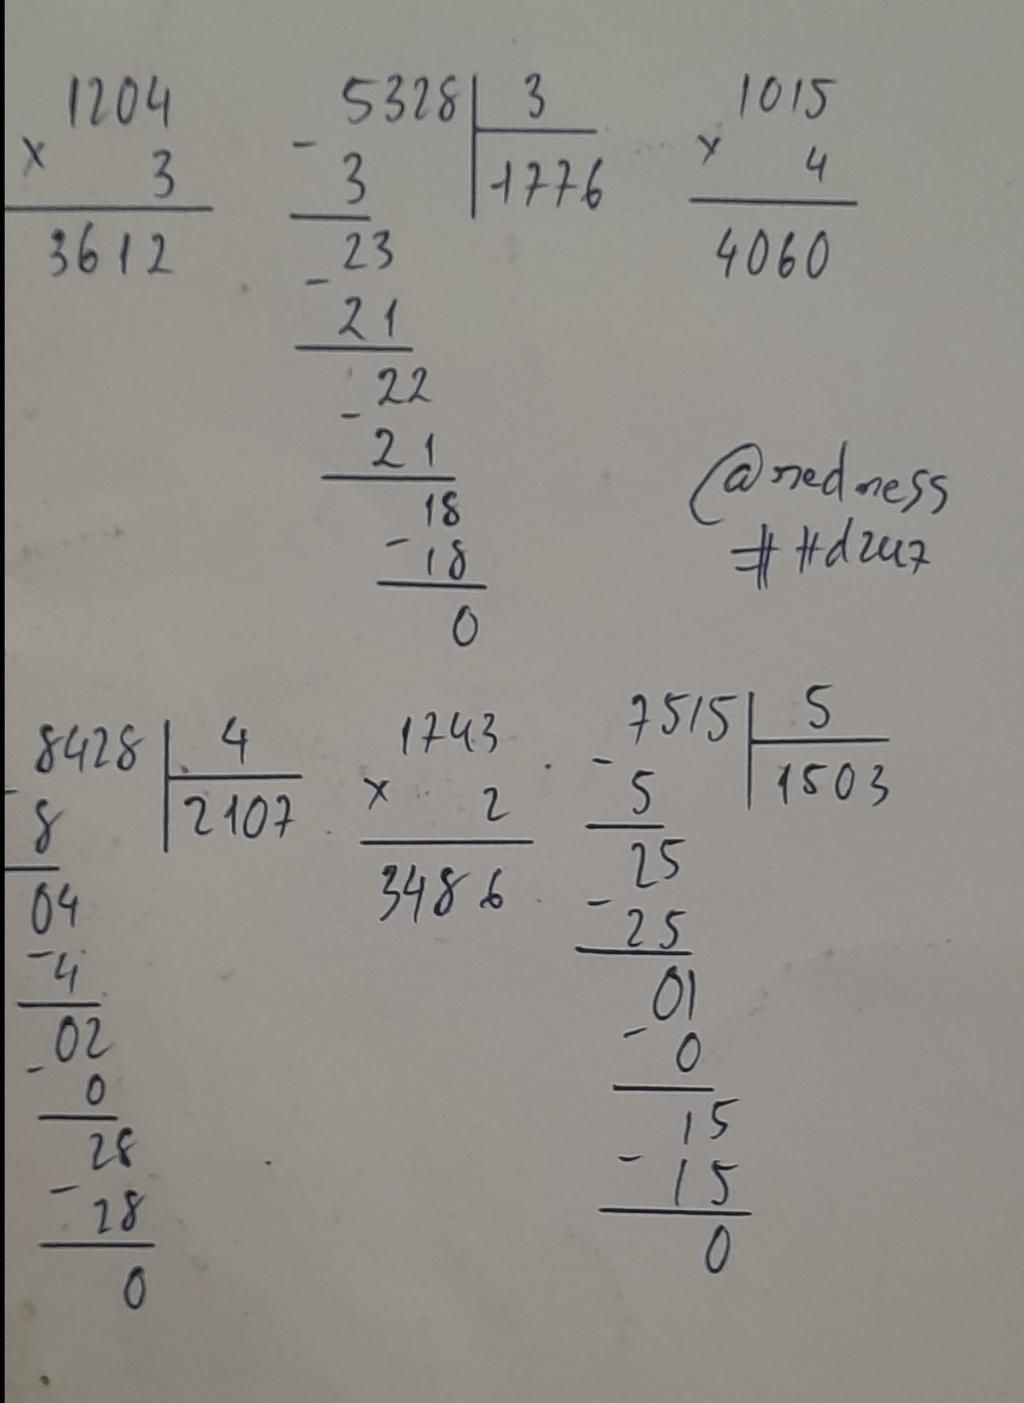 1204
× 3
3612
5328 | 3
- 3 | 1776
23
- 21
22
- 21
18
- 18
0
1015
× 4
4060
8428 | 4
- 8 | 2107
04
- 4
02
- 0
28
- 28
0
1743
× 2
3486
7515 | 5
- 5 | 1503
25
- 25
01
- 0
15
- 15
0